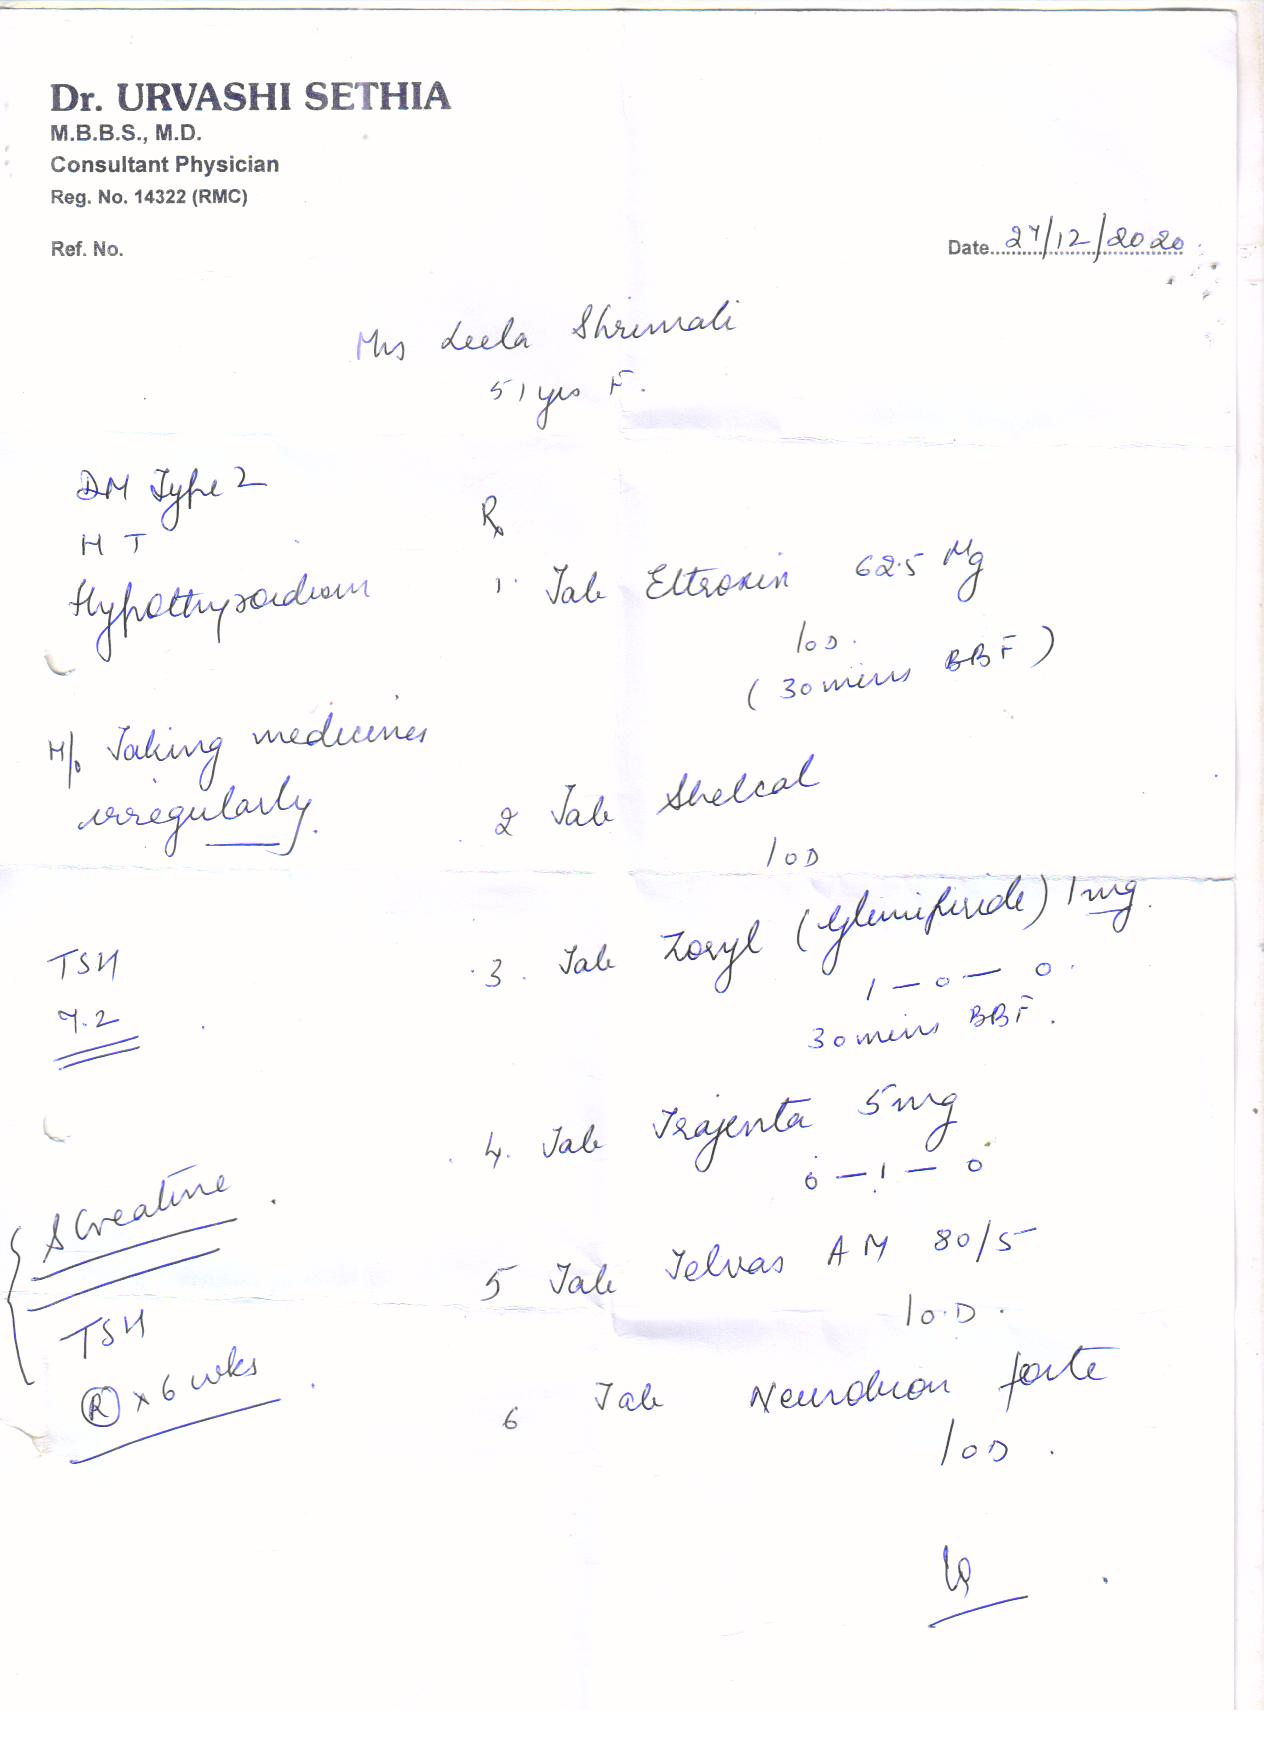 Dr. URVASHI SETHIA
M.B.B.S., M.D.
Consultant Physician
Reg. No. 14322 (RMC)
Ref. No.
Date 27/12/2020
Mrs Leela Shrimali
51 yrs F.
DM Type 2
HT
Hypothyroidism
H/o Taking medicines
irregularly.
TSH
7.2
S Creatine
TSH
R x 6 wks
Rx
1. Tab Eltroxin 62.5 Mg
1 OD.
(30 mins BBF)
2 Tab Shelcal
1 OD
3. Tab Zoryl (Glimipiride) 1mg.
1 — 0 — 0.
30 mins BBF.
4. Tab Trajenta 5mg
0 — 1 — 0
5 Tab Telvas AM 80/5
1 O.D.
6 Tab Neurobion forte
1 OD.